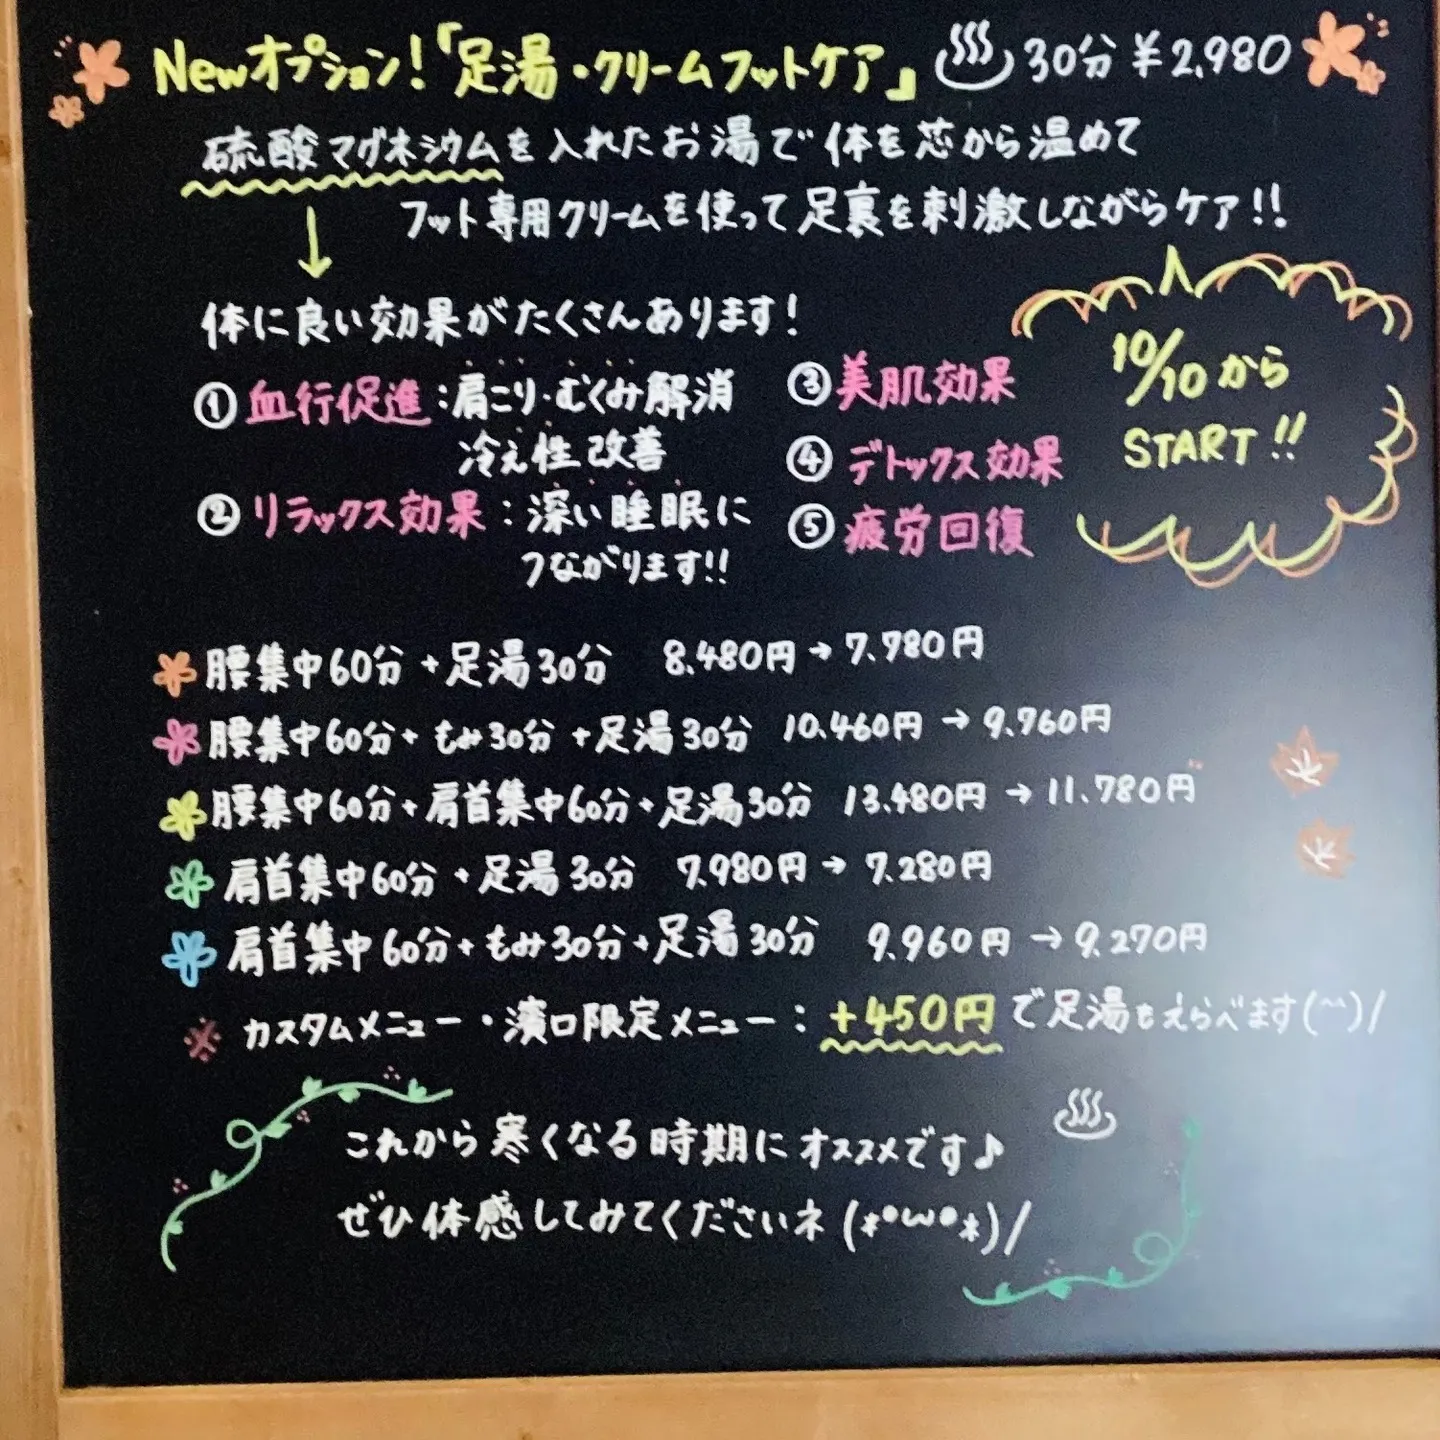 Newオプション!「足湯・クリームフットケア」♨30分 ¥2,980
硫酸マグネシウムを入れたお湯で体を芯から温めて
↓ フット専用クリームを使って足裏を刺激しながらケア!!
体に良い効果がたくさんあります!
①血行促進:肩こり・むくみ解消
冷え性改善
②リラックス効果:深い睡眠に
つながります!!
③美肌効果
④デトックス効果
⑤疲労回復
10/10から
START!!
腰集中60分+足湯30分 8.480円→7.780円
腰集中60分+もみ30分+足湯30分 10.460円→9.760円
腰集中60分+肩首集中60分+足湯30分 13.480円→11.780円
肩首集中60分+足湯30分 7.980円→7.280円
肩首集中60分+もみ30分+足湯30分 9.960円→9.270円
※カスタムメニュー・濱口限定メニュー:+450円で足湯もえらべます(^^)/
これから寒くなる時期にオススメです♪ ♨
ぜひ体感してみてくださいネ(*•ω•*)/